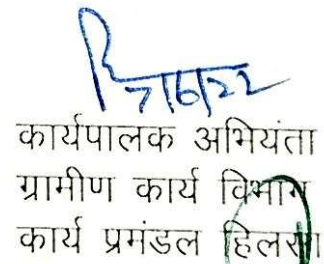 7/6/22
कार्यपालक अभियंता
ग्रामीण कार्य विभाग
कार्य प्रमंडल हिलसा